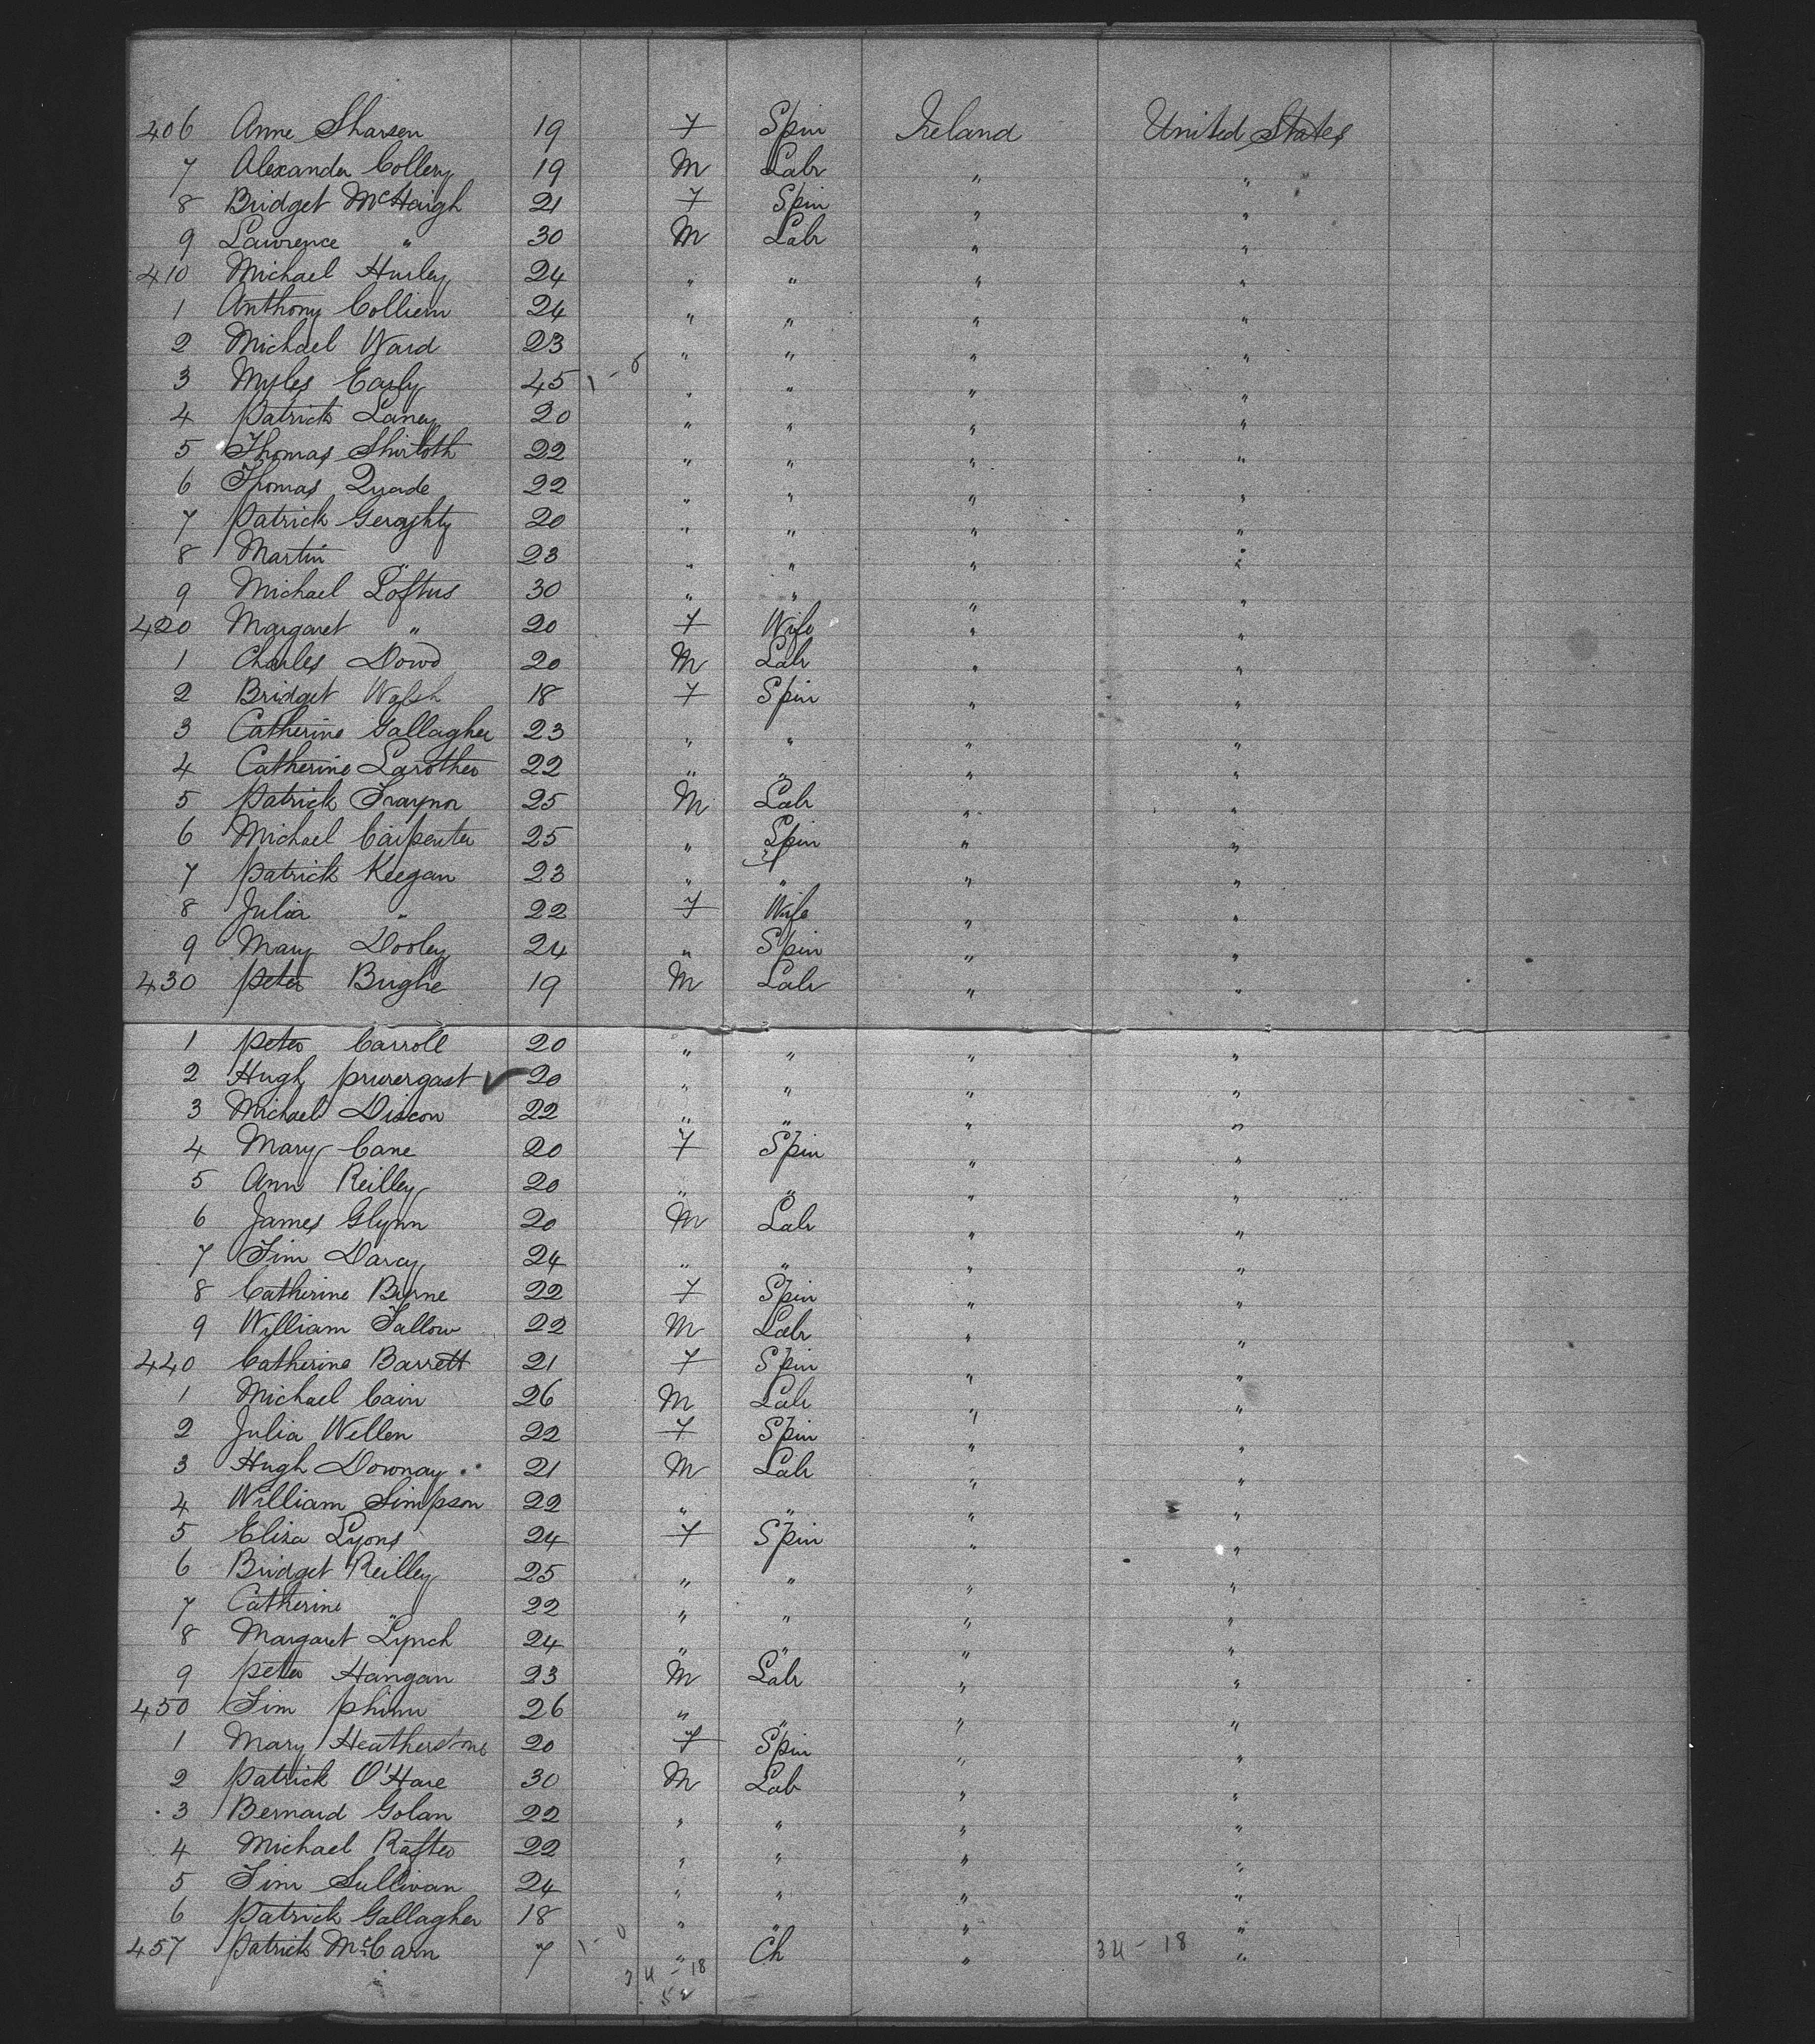 406 Anne Sharsen 19 F Spin Ireland United States
7 Alexander Collery 19 M Labr " "
8 Bridget McHaigh 21 F Spin " "
9 Lawrence " 30 M Labr " "
410 Michael Hurley 24 " " " "
1 Anthony Colliem 24 " " " "
2 Michael Ward 23 " " " "
3 Myles Early 45 " " " "
4 Patrick Laney 20 " " " "
5 Thomas 22 " " " "
6 Thomas Quade 22 " " " "
7 Patrick Geraghty 20 " " " "
8 Martin " 23 " " " "
9 Michael Loftus 30 " " " "
420 Margaret " 20 F Wife " "
1 Charles Dowd 20 M Labr " "
2 Bridget Walsh 18 F Spin " "
3 Catherine Gallagher 23 " " " "
4 Catherine 22 " " " "
5 Patrick Traynor 25 M Labr " "
6 Michael Carpenter 25 " Spin " "
7 Patrick Keegan 23 " " " "
8 Julia " 22 F Wife " "
9 Mary Dooley 24 " Spin " "
430 Peter Bughe 19 M Labr " "
1 Peter Carroll 20 " " " "
2 Hugh Prurergast ✓ 20 " " " "
3 Michael Discon 22 " " " "
4 Mary Cane 20 F Spin " "
5 Ann Reilley 20 " " " "
6 James Glynn 20 M Labr " "
7 Tim Darcy 24 " " " "
8 Catherine Byrne 22 F Spin " "
9 William Fallow 22 M Labr " "
440 Catherine Barrett 21 F Spin " "
1 Michael Cain 26 M Labr " "
2 Julia Wellen 22 F Spin " "
3 Hugh Downay 21 M Labr " "
4 William Simpson 22 " " " "
5 Eliza Lyons 24 F Spin " "
6 Bridget Reilley 25 " " " "
7 Catherine " 22 " " " "
8 Margaret Lynch 24 " " " "
9 Peter Hangan 23 M Labr " "
450 Tim Phinn 26 " " " "
1 Mary Heatherstone 20 F Spin " "
2 Patrick O'Hare 30 M Lab " "
3 Bernard Golan 22 " " " "
4 Michael Rafter 22 " " " "
5 Tim Sullivan 24 " " " "
6 Patrick Gallagher 18 " " " "
457 Patrick McCarn 7 " Ch " 34 - 18 "
34 - 18
52